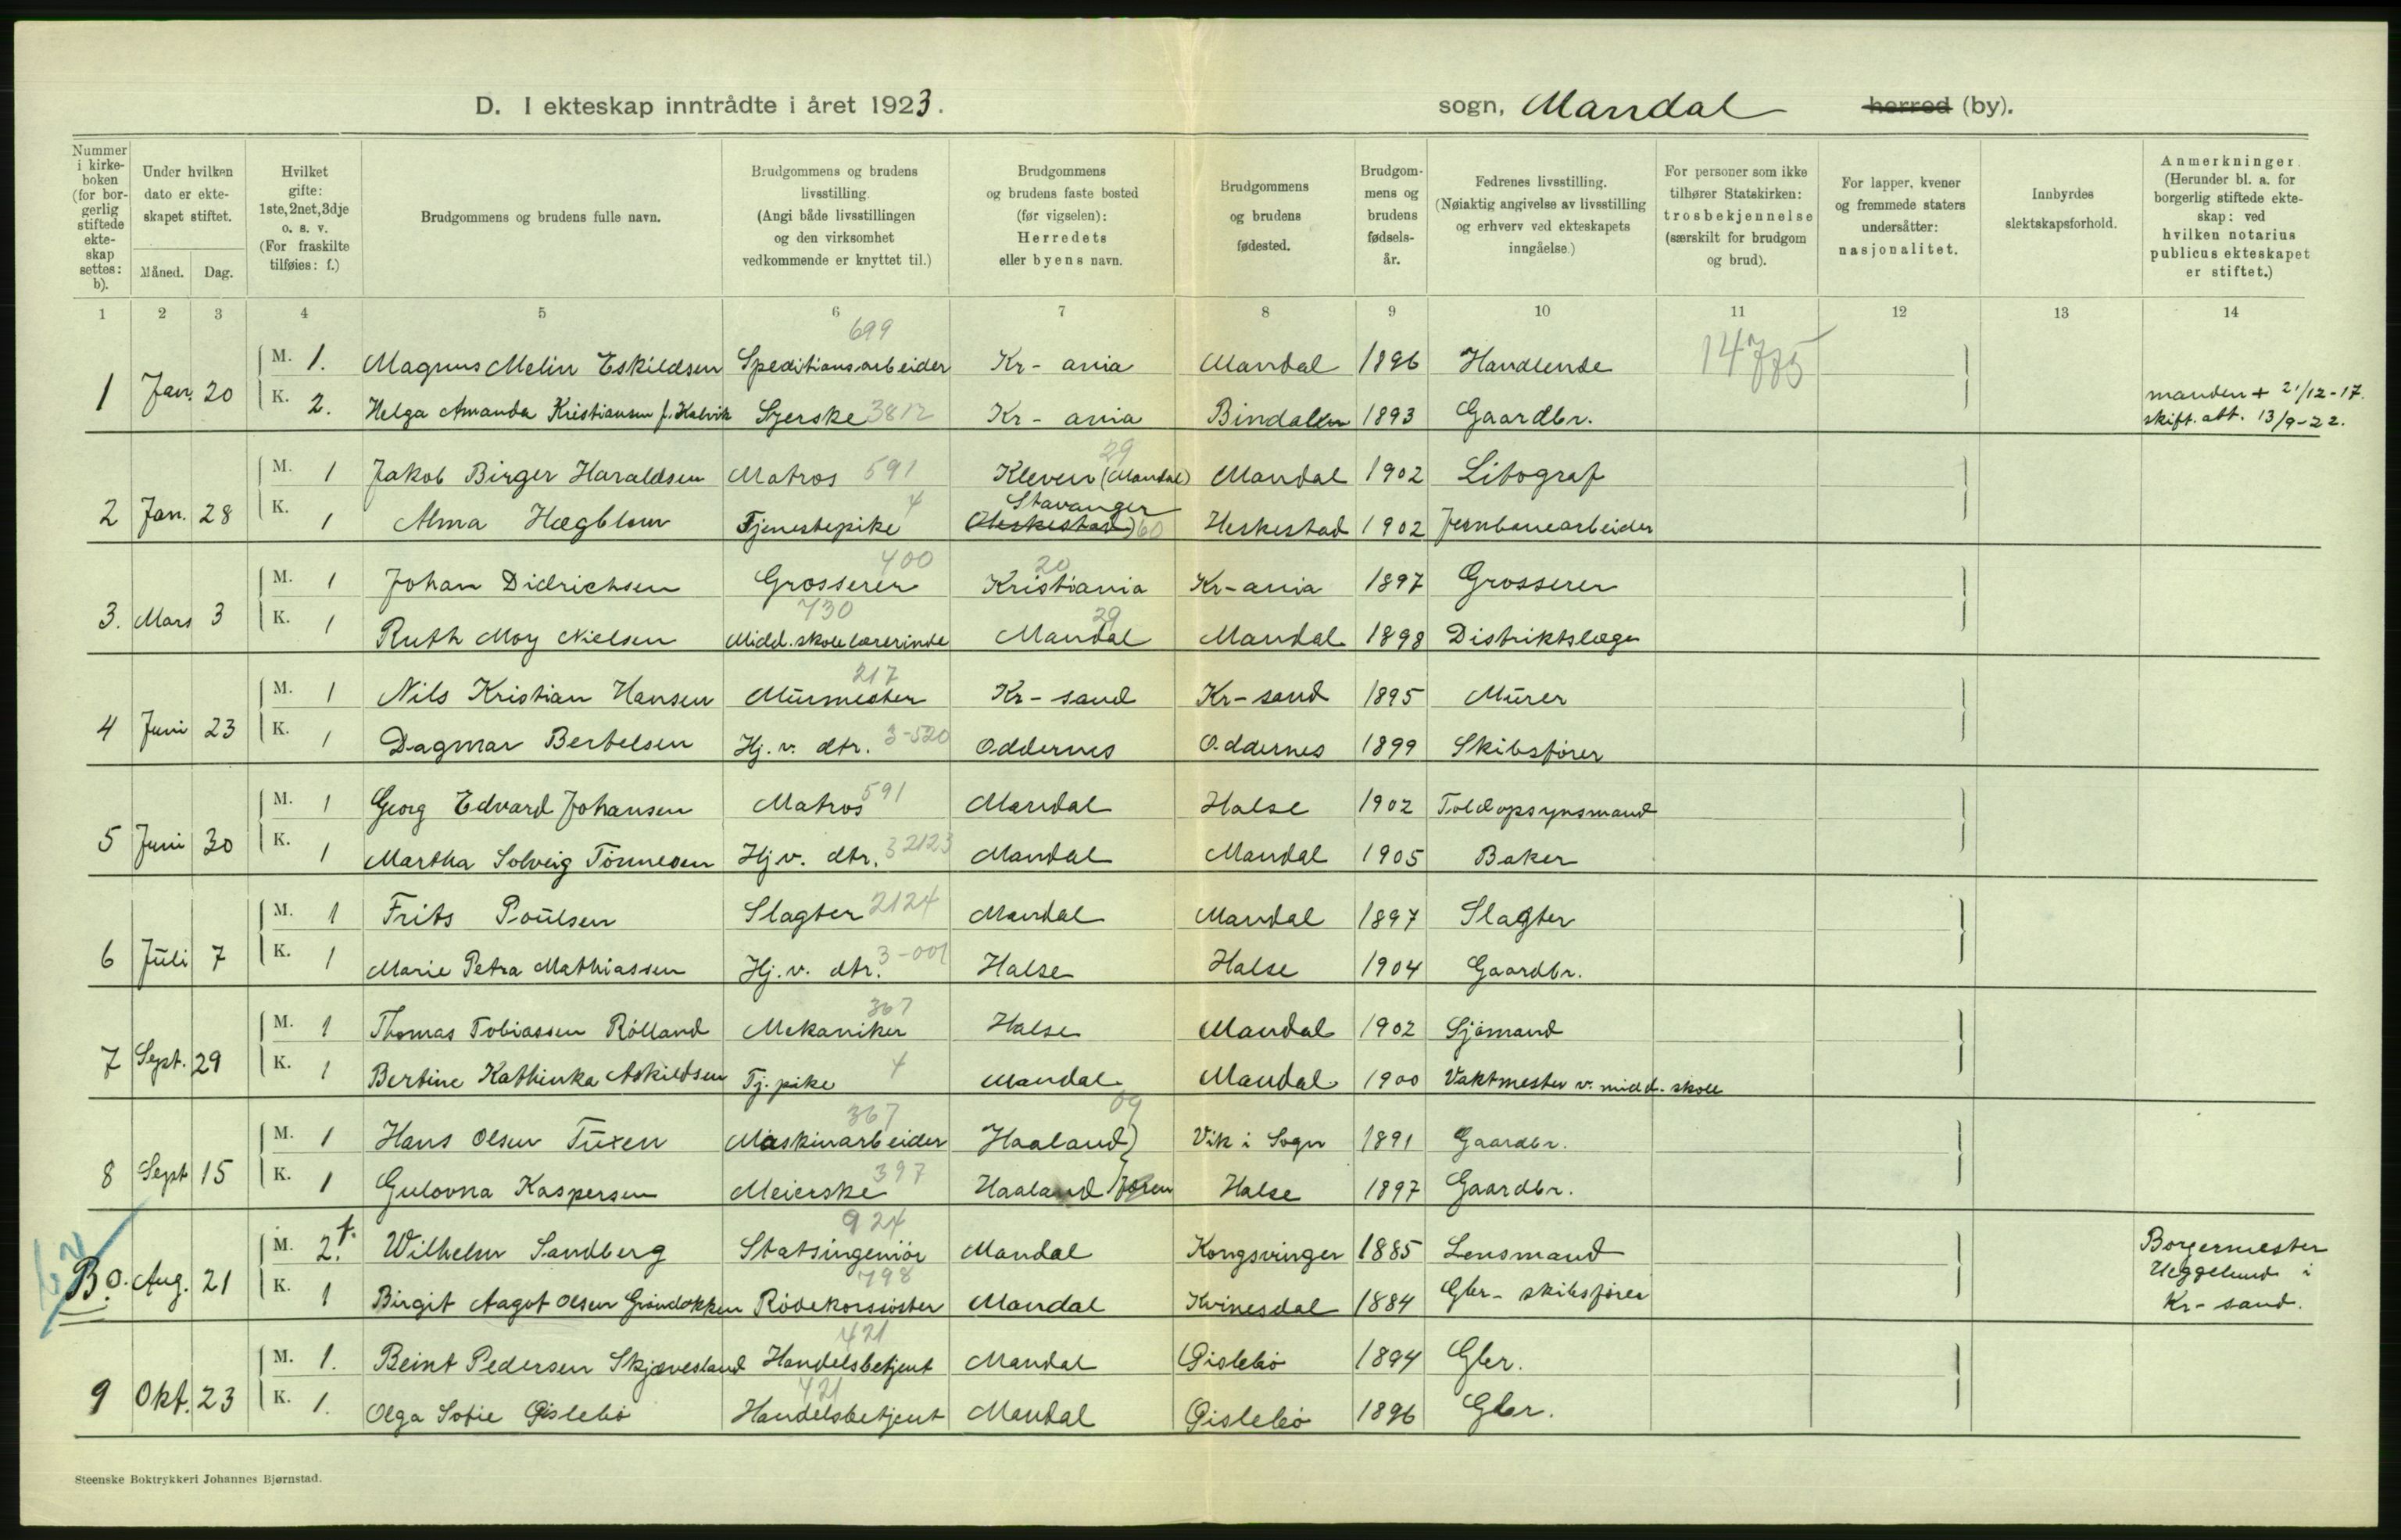 D. I ekteskap inntrådte i året 1923.
sogn, Mandal herred (by).
Nummer i kirkeboken (for borgerlig stiftede ekteskap settes: b).
Under hvilken dato er ekteskapet stiftet.
Måned. Dag.
Hvilket gifte: 1ste, 2net, 3dje o. s. v. (For fraskilte tilføies: f.)
Brudgommens og brudens fulle navn.
Brudgommens og brudens livsstilling. (Angi både livsstillingen og den virksomhet vedkommende er knyttet til.)
Brudgommens og brudens faste bosted (før vigselen): Herredets eller byens navn.
Brudgommens og brudens fødested.
Brudgommens og brudens fødselsår.
Fedrenes livsstilling. (Nøiaktig angivelse av livsstilling og erhverv ved ekteskapets inngåelse.)
For personer som ikke tilhører Statskirken: trosbekjennelse (særskilt for brudgom og brud).
For lapper, kvener og fremmede staters undersåtter: nasjonalitet.
Innbyrdes slektskapsforhold.
Anmerkninger. (Herunder bl. a. for borgerlig stiftede ekteskap: ved hvilken notarius publicus ekteskapet er stiftet.)
1 2 3 4 5 6 7 8 9 10 11 12 13 14
699
M. 1. Magnus Melin Eskildsen Speditionsarbeider Kr-ania Mandal 1896 Handlende 14775
1 Jan. 20
K. 2. Helga Amanda Kristiansen f. Kalvik Syerske 3812 Kr-ania Bindalen 1893 Gaardbr. manden + 21/12-17.
skift. att. 13/9-22.
29
M. 1 Jakob Birger Haraldsen Matros 591 Kleven (Mandal) Mandal 1902 Litograf
2 Jan. 28
Stavanger
K. 1 Alma Hægblom Tjenestepike 4 (Heskestad) 60 Heskestad 1902 Jernbanearbeider
400 20
M. 1 Johan Didrichsen Grosserer Kristiania Kr-ania 1897 Grosserer
3. Mars 3
730 29
K. 1 Ruth Moy Nielsen Midd.skolelærerinde Mandal Mandal 1898 Distriktslæge
217
M. 1 Nils Kristian Hansen Murmester Kr-sand Kr-sand 1895 Murer
4 Juni 23
K. 1 Dagmar Bertelsen Hj. v. dtr. 3-520 Oddernes Oddernes 1899 Skibsfører
M. 1 Georg Edvard Johansen Matros 591 Mandal Halse 1902 Toldopsynsmand
5 Juni 30
K. 1 Martha Solveig Tönnesen Hj. v. dtr. 32123 Mandal Mandal 1905 Baker
M. 1 Frits Poulsen Slagter 2124 Mandal Mandal 1897 Slagter
6 Juli 7
K. 1 Marie Petra Mathiassen Hj. v. dtr. 3-001 Halse Halse 1904 Gaardbr.
367
M. 1 Thomas Tobiassen Rölland Mekaniker Halse Mandal 1902 Sjömand
7 Sept. 29
K. 1 Bertine Kathinka Askildsen Tj. pike 4 Mandal Mandal 1900 Vaktmester v. midd. skole
367 09
M. 1 Hans Olsen Tuxen Maskinarbeider Haaland) Vik i Sogn 1891 Gaardbr.
8 Sept 15
K. 1 Gulovna Kaspersen Meierske 397 Haaland Jæren Halse 1897 Gaardbr.
924
M. 2. f. Wilhelm Sandberg Statsingeniör Mandal Kongsvinger 1885 Lensmand Borgermester
B. 9. Aug. 21 Heggelund i
798
K. 1 Birgit Aagot Olsen Gröndokken Rödekorssöster Mandal Kvinesdal 1884 Gbr- skibsfører Kr-sand.
421
M. 1. Beint Pedersen Skjævesland Handelsbetjent Mandal Øislebö 1894 Gbr.
9 Okt. 23
421
K. 1. Olga Sofie Øislebö Handelsbetjent Mandal Øislebö 1896 Gbr.
Steenske Boktrykkeri Johannes Bjørnstad.